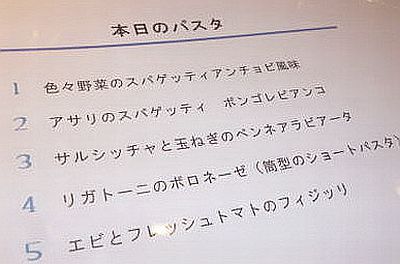 本日のパスタ
1 色々野菜のスパゲッティアンチョビ風味
2 アサリのスパゲッティ ボンゴレビアンコ
3 サルシッチャと玉ねぎのペンネアラビアータ
4 リガトーニのボロネーゼ(筒型のショートパスタ)
5 エビとフレッシュトマトのフィジッリ